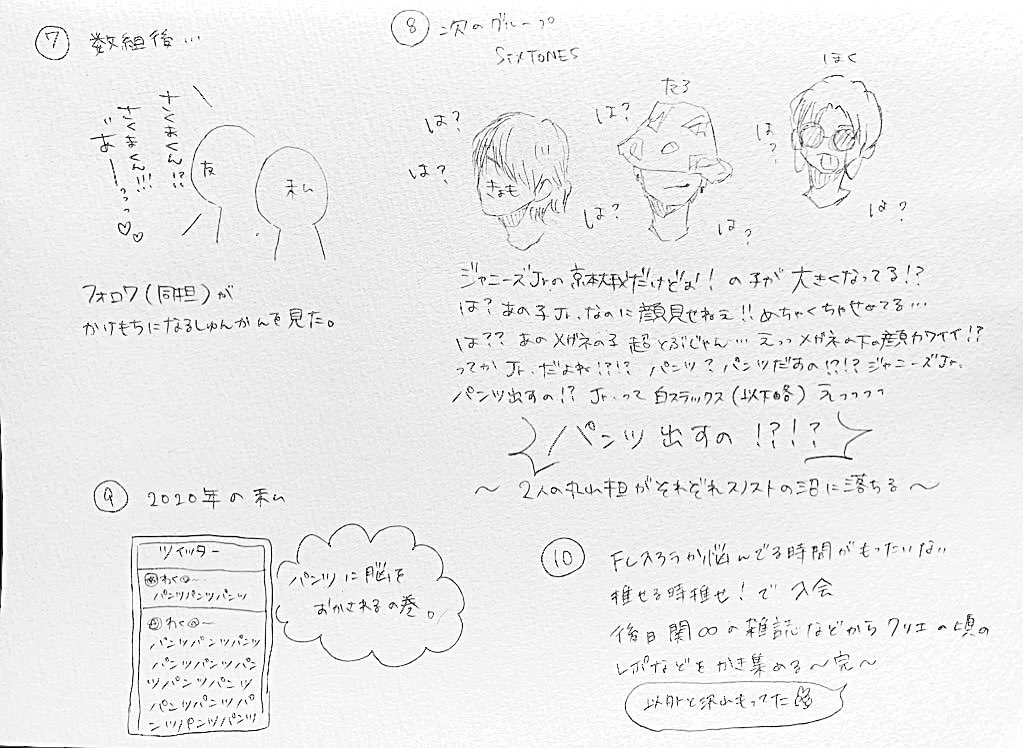 ⑦ 数組後…
さくまくん!?
さくまくん!!!
ぎあ
ーっっっ♡♡
友
私
フォロワ(同担)が
かけもちになるしゅんかんを見た。
⑧ 次のグループ
SixTONES
は?
は?
きょも
は?
たろ
は?
は?
ほく
は?
は?
ジャニーズJrの京本大我だけどぉ!! の子が 大きくなってる!?
は? あの子Jr.なのに顔見せねえ!! めちゃくちゃせめてる…
は?? あの メガネの子 超とぶじゃん… えっっ メガネの下の顔カワイイ!?
ってか Jr.だよね!?!? パンツ? パンツだすの!?!? ジャニーズJr.
パンツ出すの!? Jr.って 白スラックス(以下略) えっっっっ
パンツ 出すの !?!?
〜 2人の丸山担がそれぞれスノストの沼に落ちる 〜
⑨ 2020年の私
ツイッター
わく@〜
パンツパンツパンツ
わく@〜
パンツパンツパンツ
パンツパンツパン
ツパンツパンツ
パンツパンツパ
ンツパンツパンツ
パンツに脳を
おかされるの巻。
⑩ FC入ろうか悩んでる時間がもったいない
推せる時推せ! で 入会
後日関∞の雑誌などから クリエの頃の
レポなどをかき集める 〜完〜
以外と沢山もってた